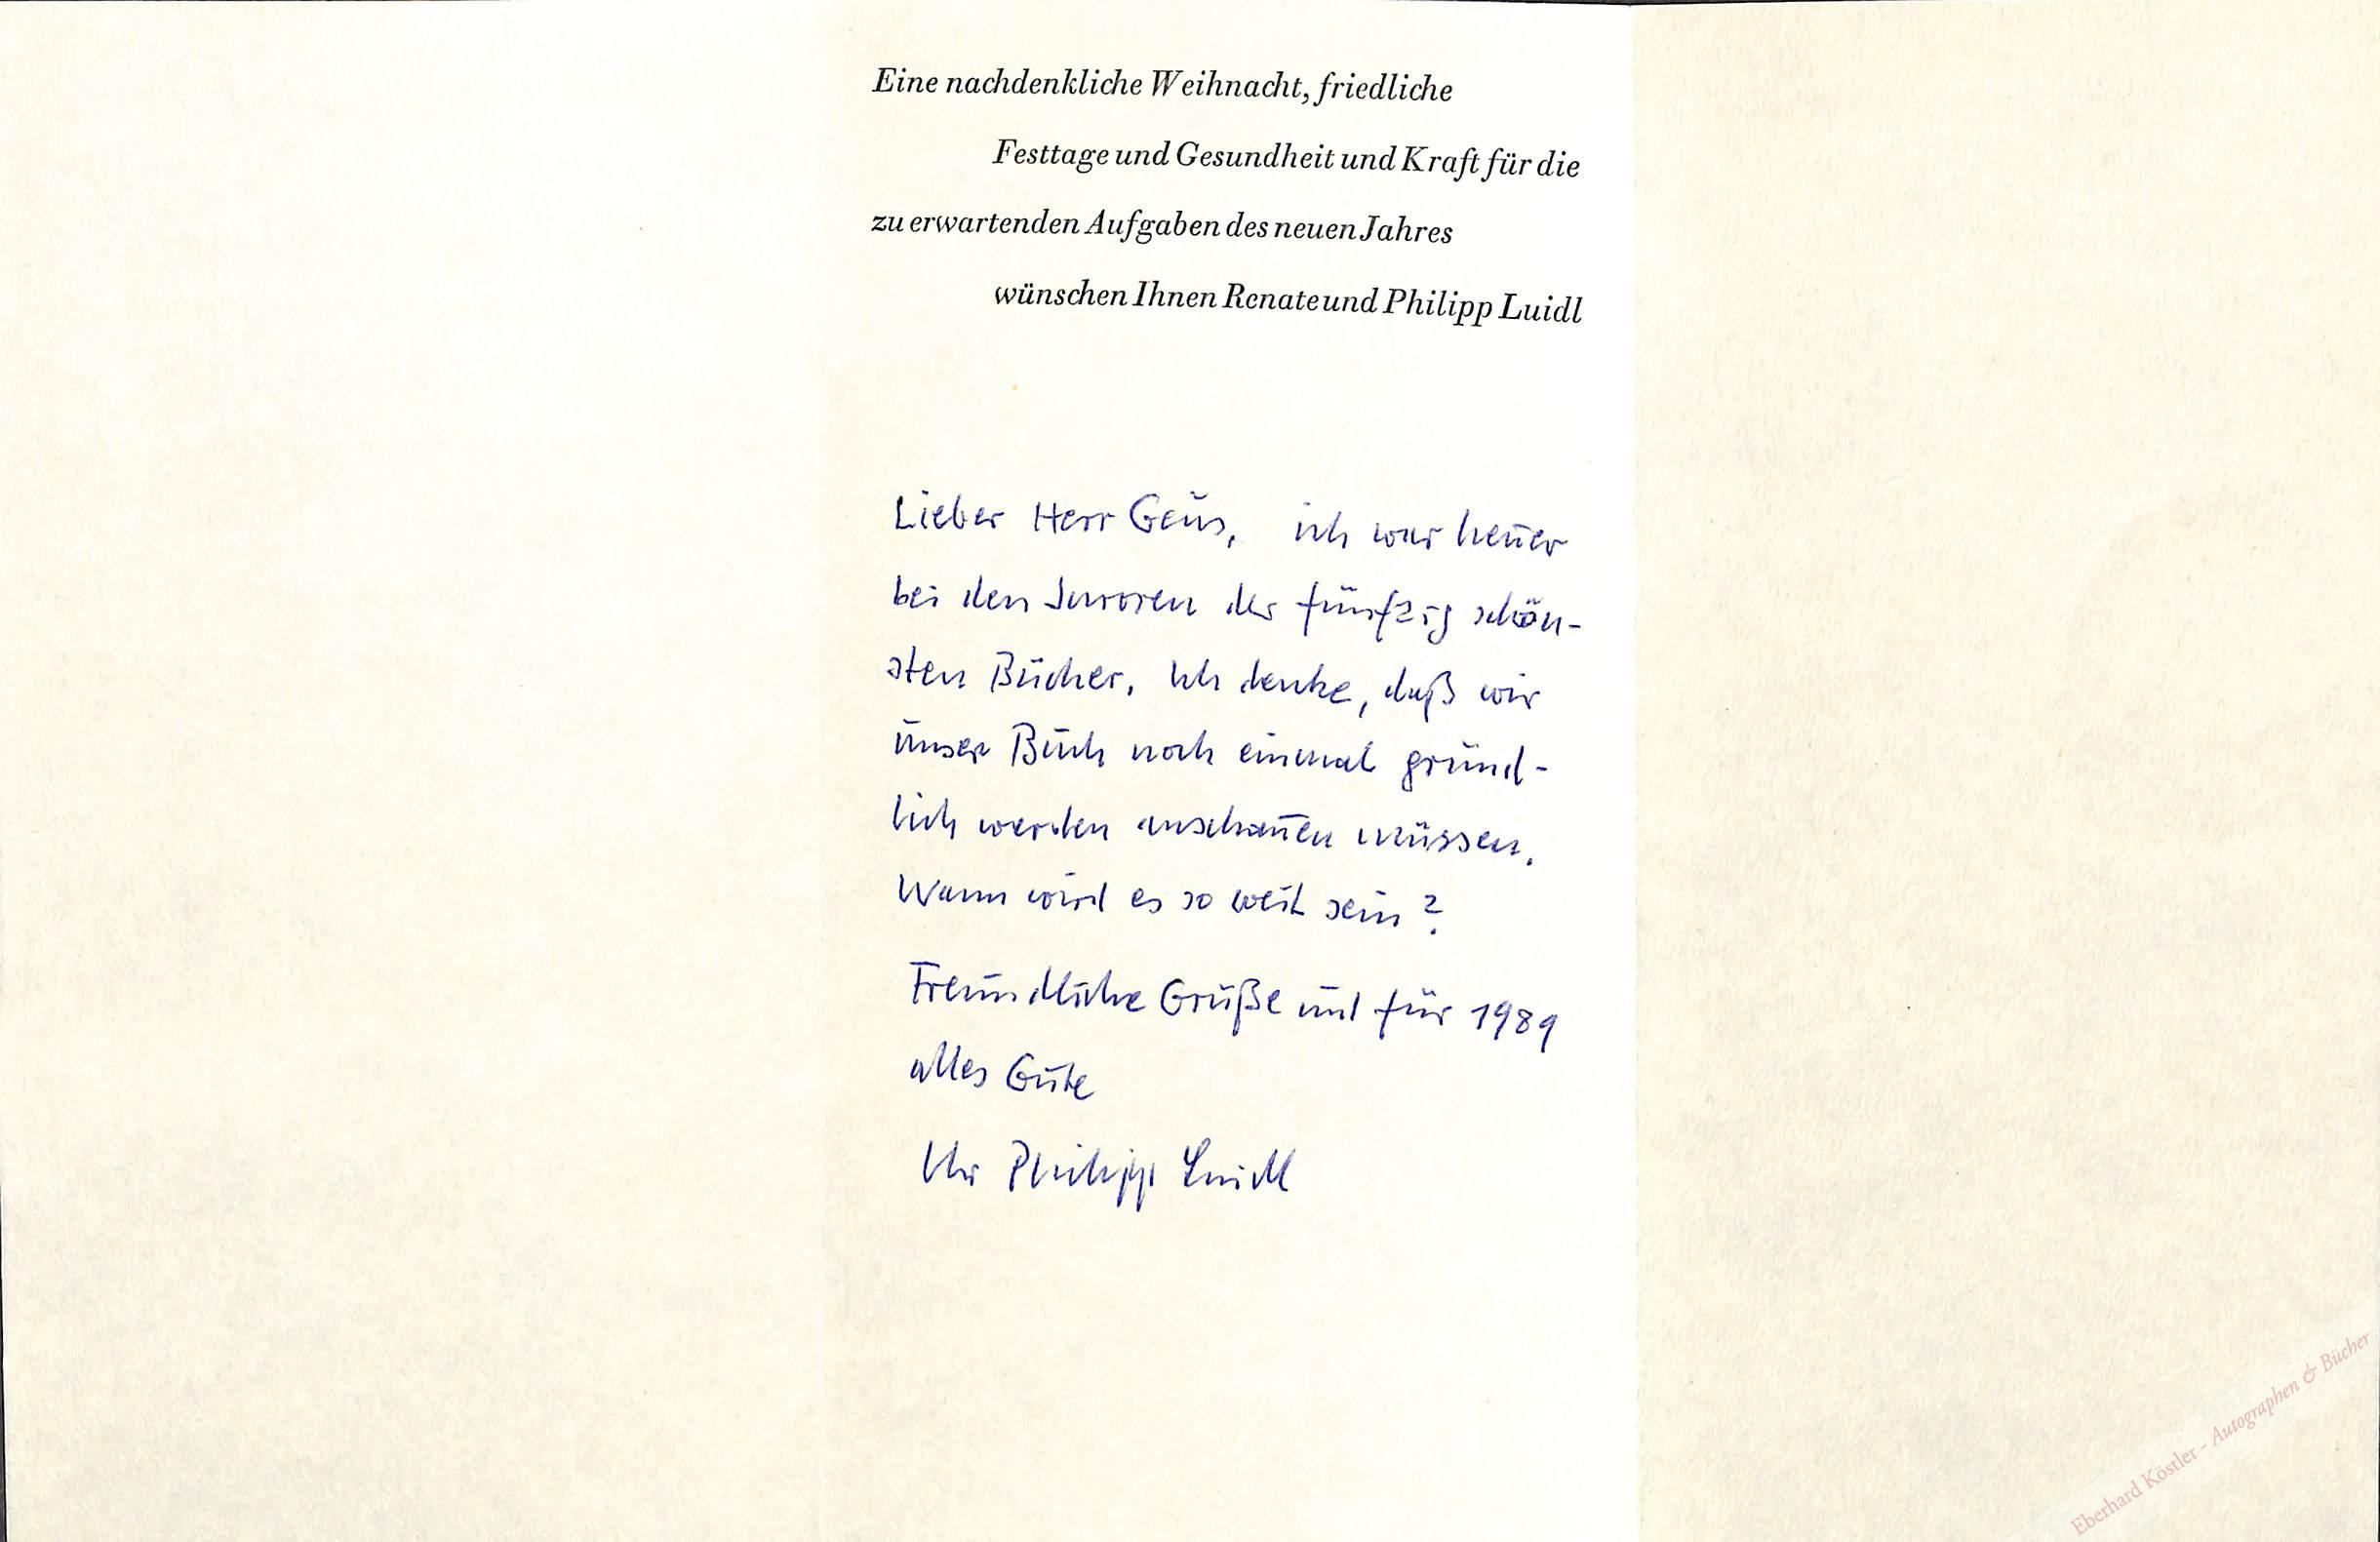 Eine nachdenkliche Weihnacht, friedliche
Festtage und Gesundheit und Kraft für die
zu erwartenden Aufgaben des neuen Jahres
wünschen Ihnen Renate und Philipp Luidl
Lieber Herr Geus, ich war heuer
bei den Juroren der fünfzig schön-
sten Bücher. Ich denke, daß wir
unser Buch noch einmal gründ-
lich werden anschauen müssen.
Wann wird es so weit sein?
Freundliche Grüße und für 1989
alles Gute
Ihr Philipp Luidl
Eberhard Köstler - Autographen & Bücher